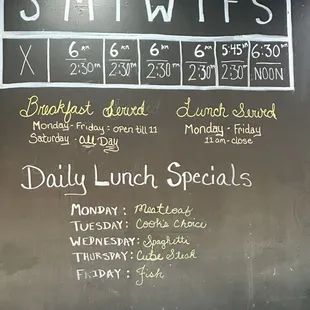 S M T W T F S
X 6am 6am 6am 6am 5:45am 6:30am
2:30pm 2:30pm 2:30pm 2:30pm 2:30pm NOON
Breakfast Servd Lunch Servd
Monday - Friday : open till 11 Monday - Friday
Saturday - All Day 11am - close
Daily Lunch Specials
MONDAY : Meatloaf
TUESDAY : Cook's Choice
WEDNESDAY : Spaghetti
THURSDAY : Cube Steak
FRIDAY : Fish